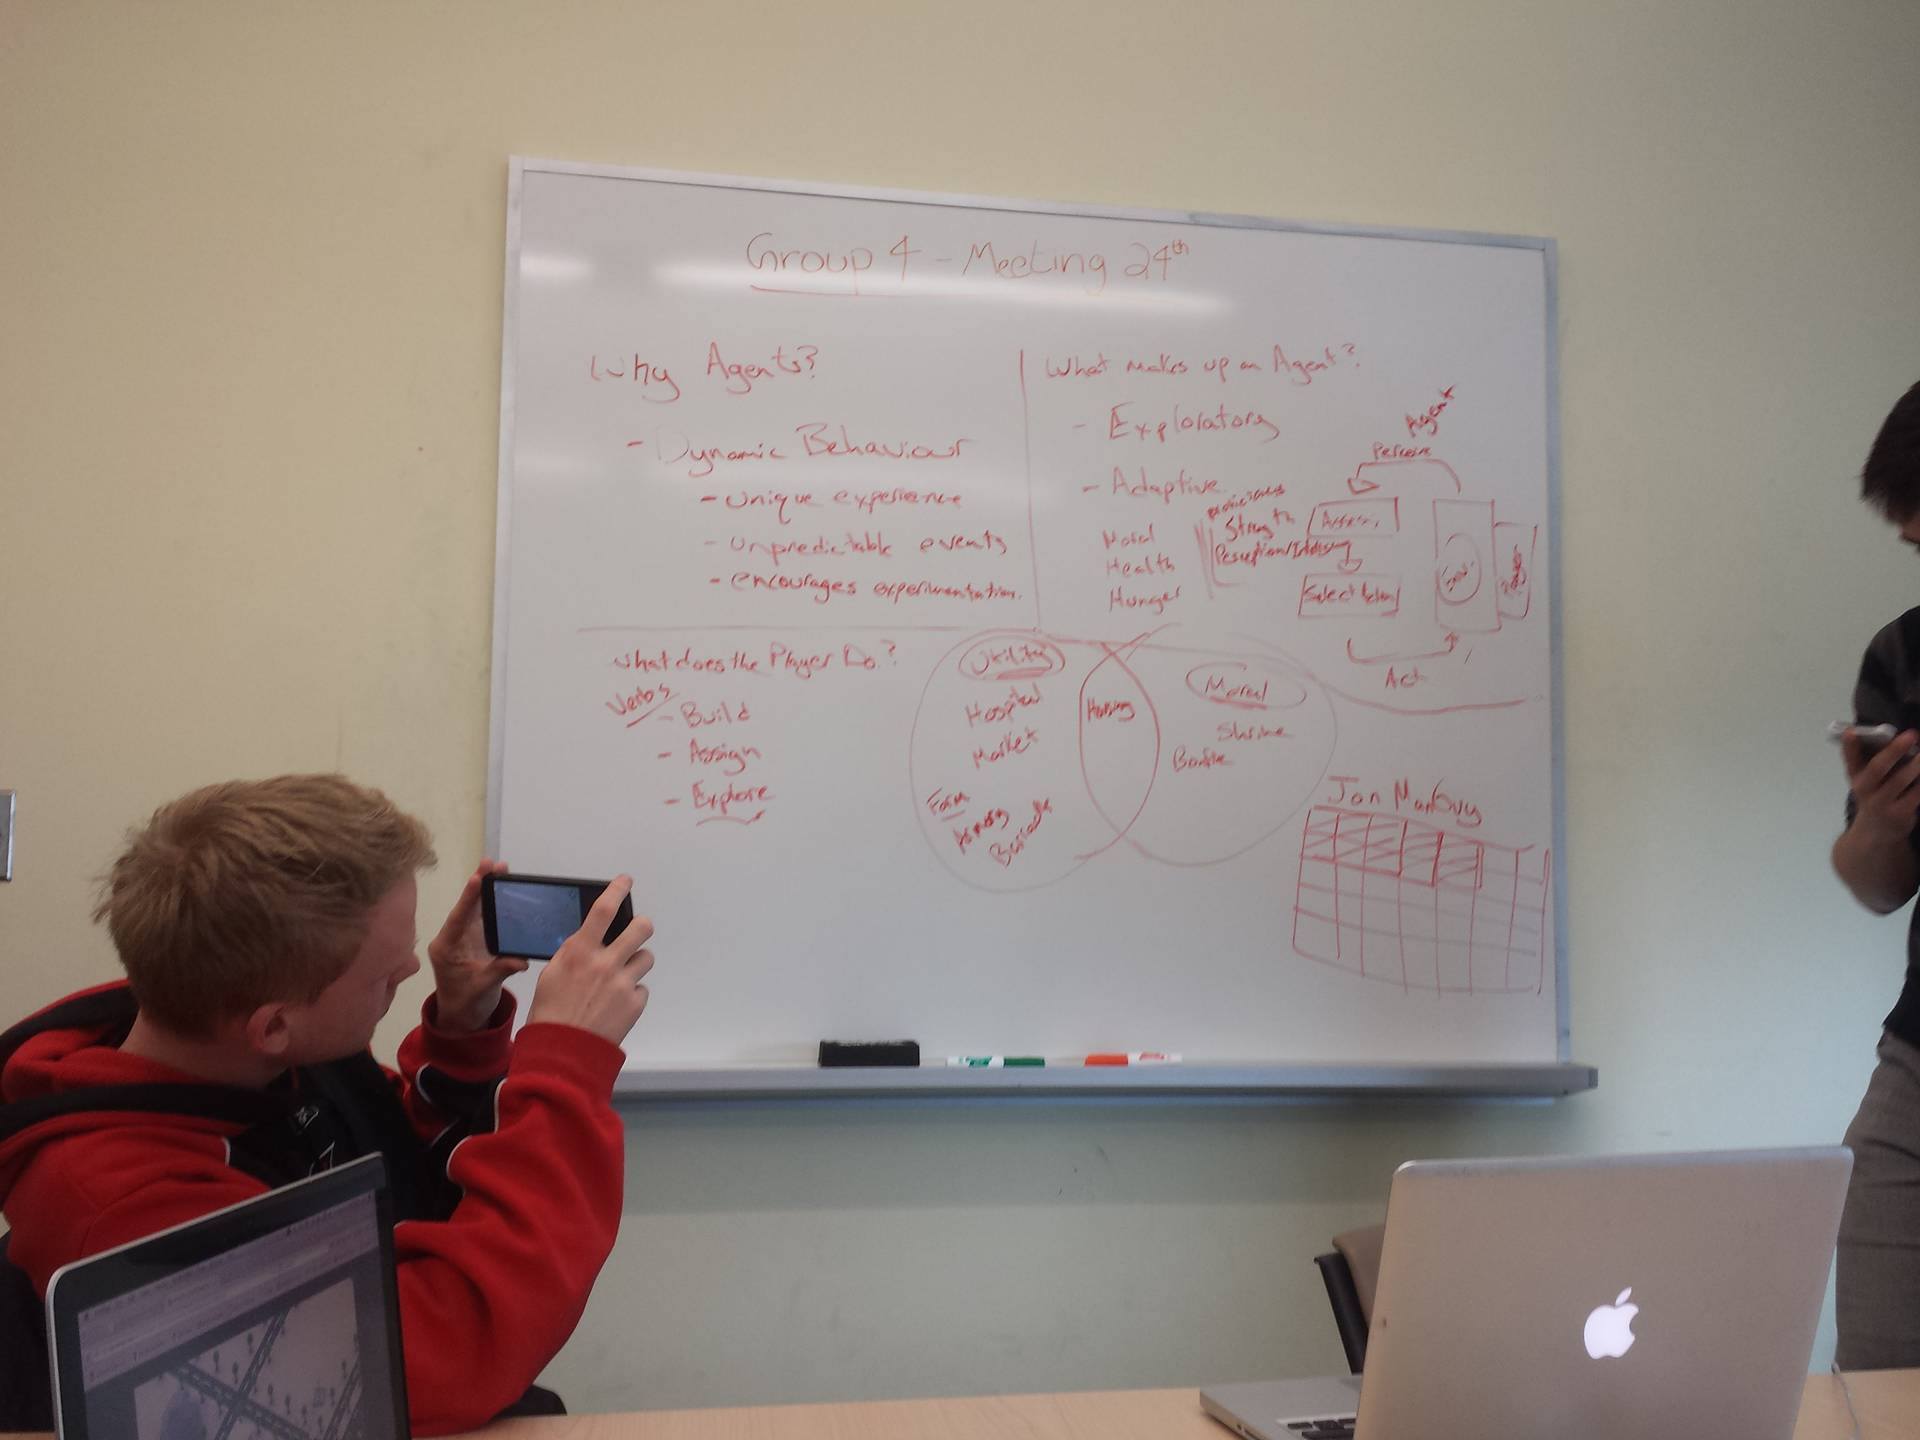 Group 4 - Meeting 24th
Why Agents?
- Dynamic Behaviour
- unique experience
- unpredictable events
- encourages experimentation.
What makes up an Agent?
- Exploratory
- Adaptive
Moral
Health
Hunger
Strength
Agent
Perceive
Select Action
Act
Player
What does the Player Do?
Verbs
- Build
- Assign
- Explore
Utility
Hospital
Market
Farm
Armory
Housing
Moral
Shrine
Jon